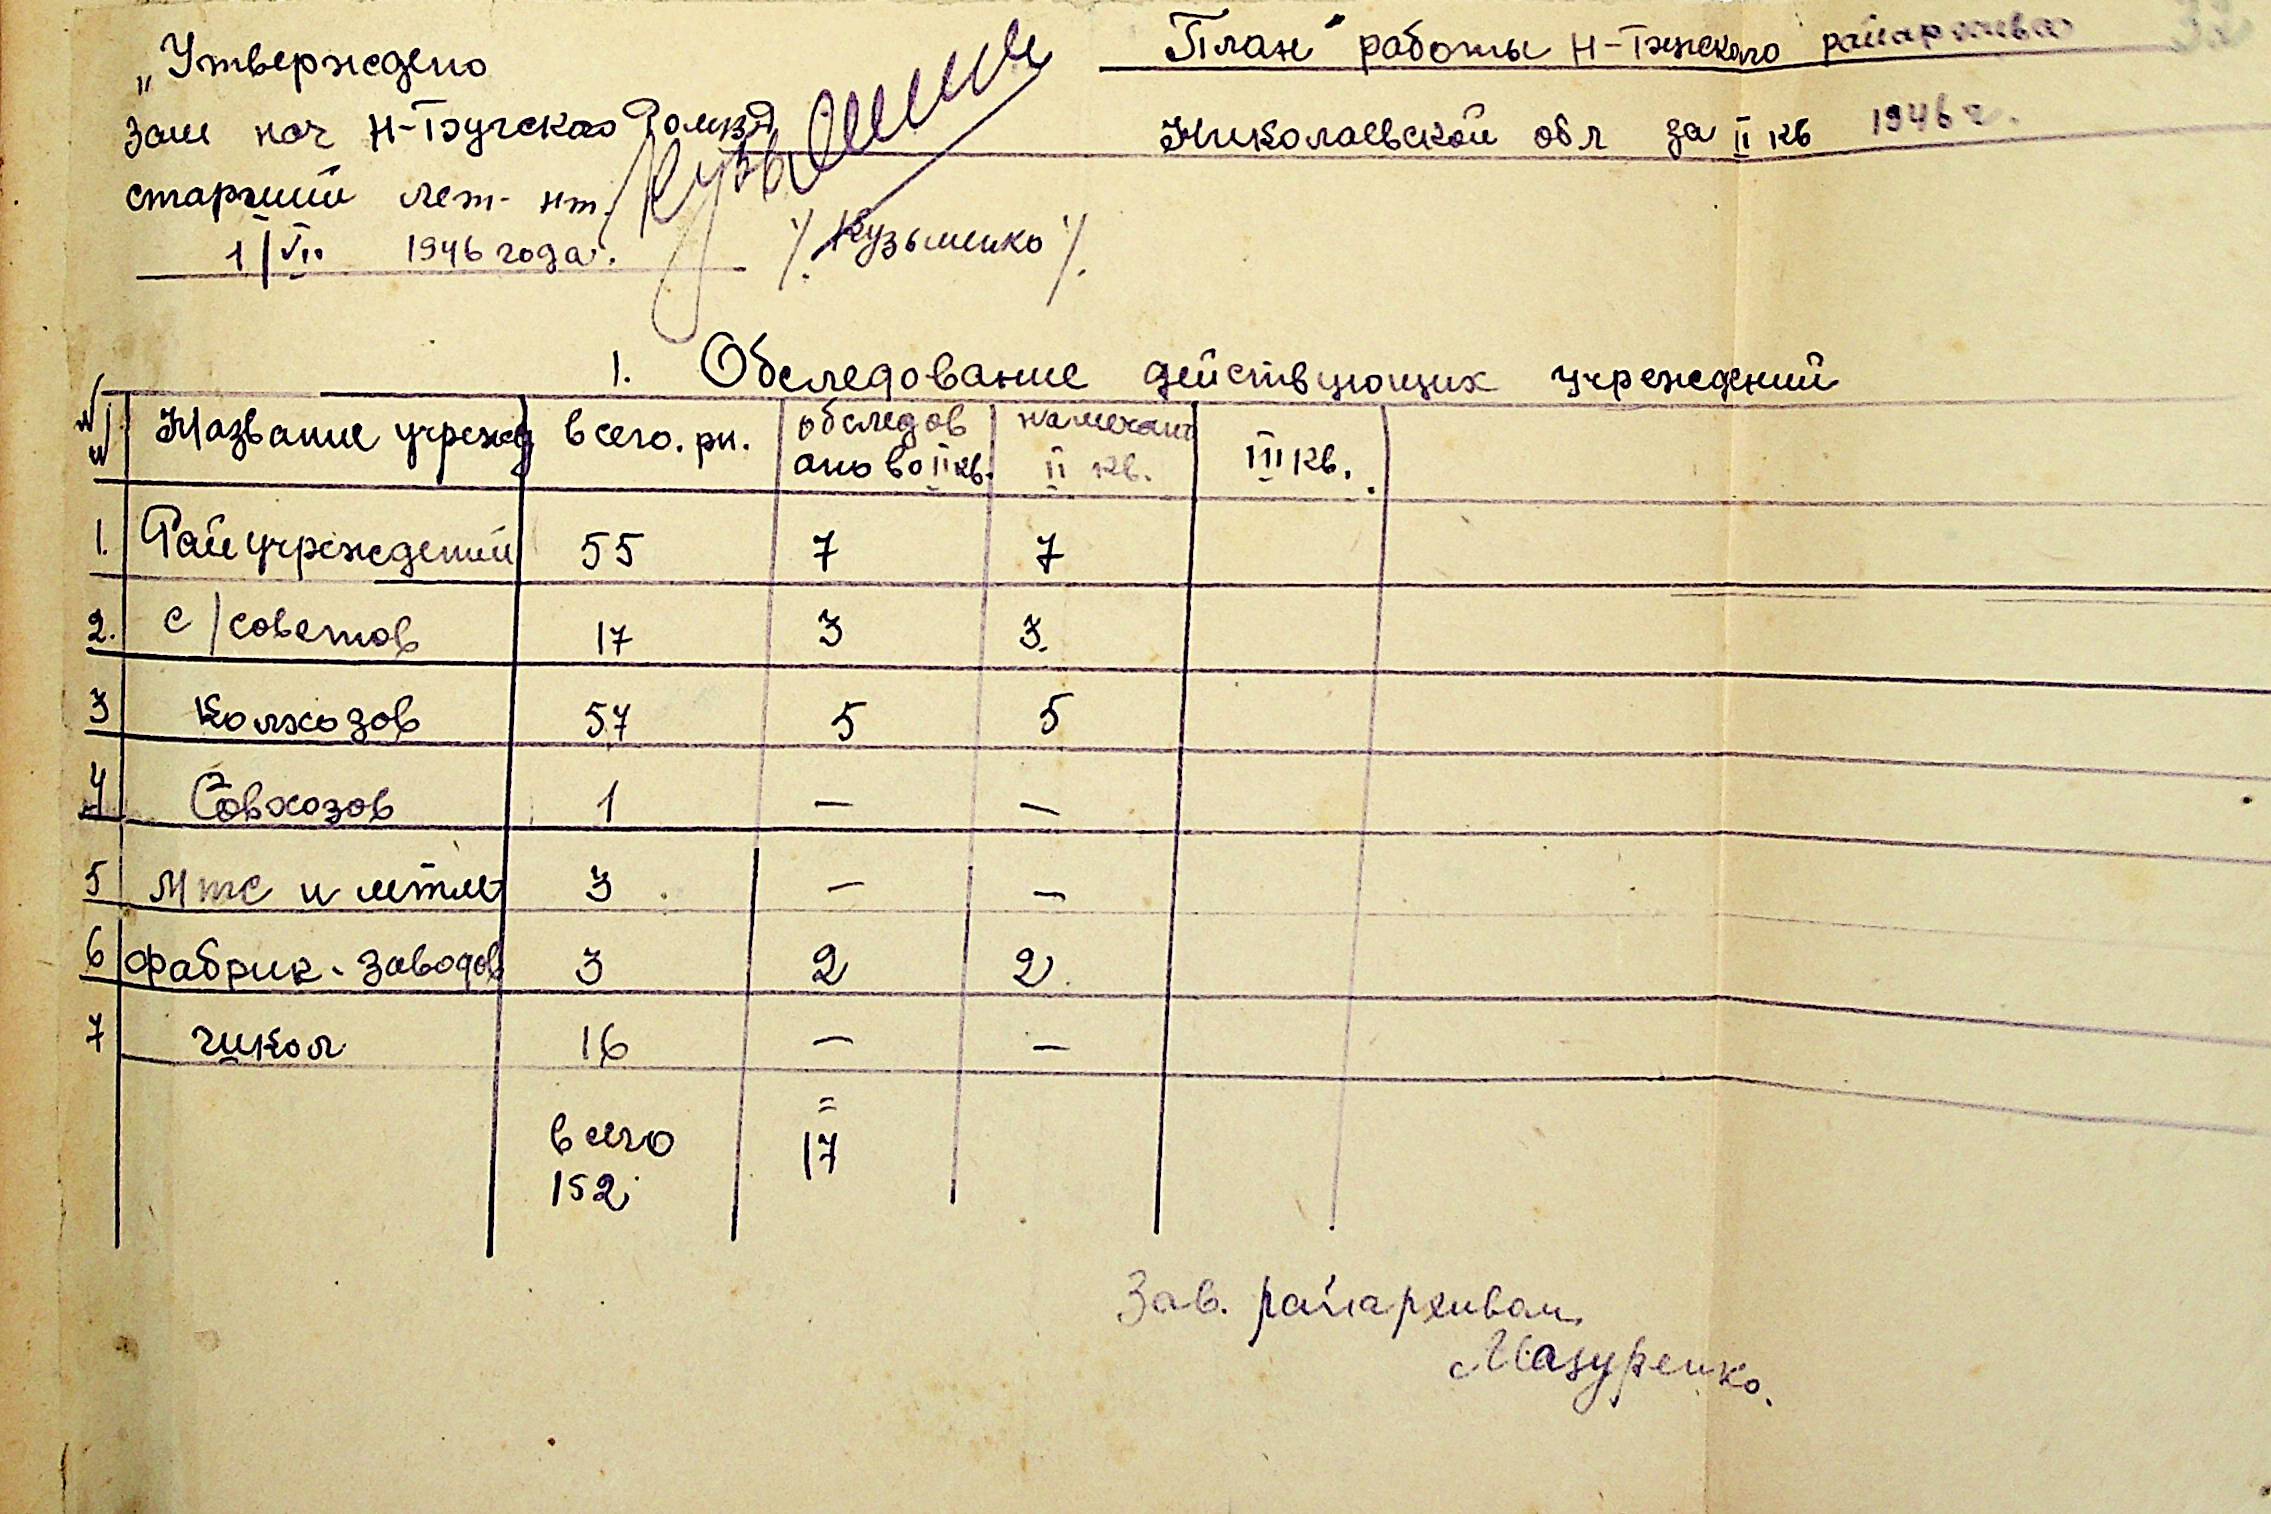 „Утверждено
Зам нач Н-Бугского
старший лейт- нт.
1/VII. 1946 года.
/. Кузьменко /.
"План" работы Н-Бугского райархива
Николаевской обл за II кв 1946 г.
32
1. Обследование действующих учреждений
№№ Название учрежд всего. рн. обследов ано во II кв. намечан II кв. III кв.
1. Райучреждений 55 7 7
2. с/советов 17 3 3.
3 Колхозов 57 5 5
4 Совхозов 1 — —
5 мтс и мтм 3 — —
6 фабрик-заводов 3 2 2.
7 школ 16 — —
всего = 
152 17
Зав. райархивом
Мазуренко.